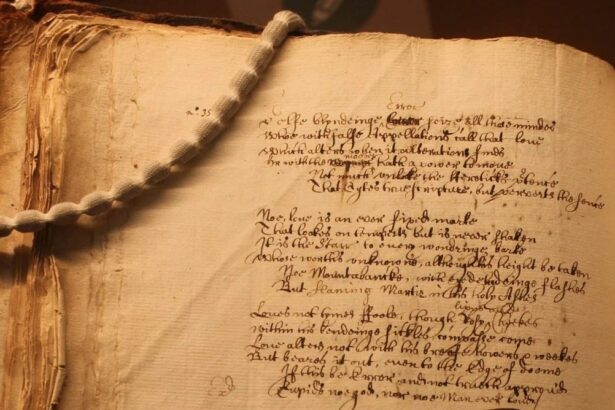 no: 35
Error
Selfe blyndeinge seize all those mindes
Whoe with false Appellations call that love
Which alters when it alterations finds
mover
Or with the hath a power to move
Not much unlike the Hereticks
That Cytes true scripture, but perverts the sense
Noe, love is an ever fixed marke
That lookes on tempests but is never shaken
It is the Starr to every wandringe barke
Whose worths unknowne, although his height be taken
Noe Mountebanke, with eye deludeinge flashes
But flaming Martir in his holy Ashes
lipps &
Loves not tymes foole, though Rosy Cheekes
Within his bendeinge sickles, compasse come
Love alters not with his breefe howers & weekes
But beares it out, even to the Edge of doome
If this be Error and not truth approvd
Cupids noe god, nor noe Man ever lov'd